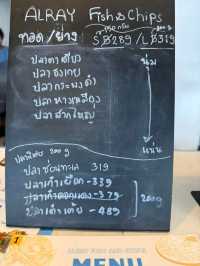 ALRAY Fish & Chips
ทอด/ย่าง S ฿289 / L ฿319
150 กรัม 200 g
ปลาตาเดียว นุ่ม
ปลา
ปลากะพงดำ
ปลาหางเหลือง
ปลาสากใหญ่
แน่น
ปลาพิเศษ 200 g
ปลาช่อนทะเล 319
ปลาเก๋าเผือก - 339
ปลาเก๋าดอกแดง - 379
ปลาเต๋าเต้ย - 489
200g
MENU